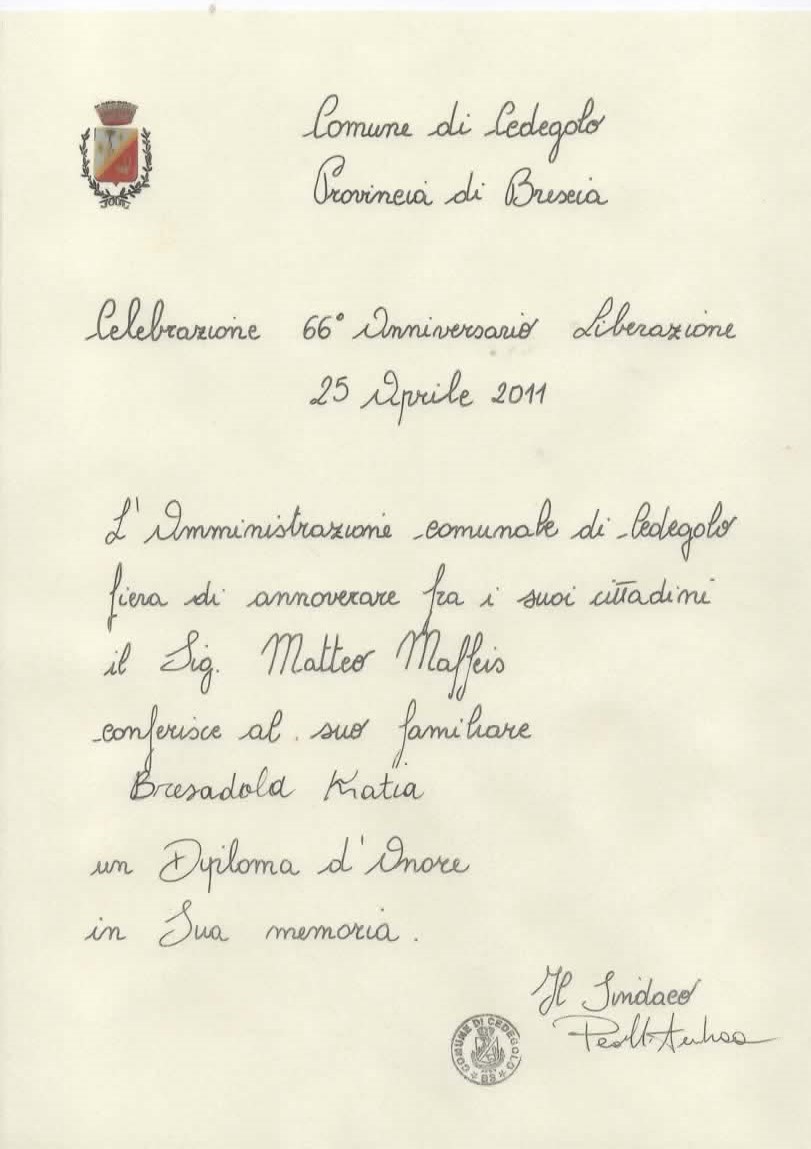 Comune di Cedegolo
Provincia di Brescia
Celebrazione 66° Anniversario Liberazione
25 Aprile 2011
L'Amministrazione comunale di Cedegolo
fiera di annoverare fra i suoi cittadini
il Sig. Matteo Maffeis
conferisce al suo familiare
Bresadola Katia
un Diploma d'Onore
in Sua memoria.
Il Sindaco
COMUNE DI CEDEGOLO
BS